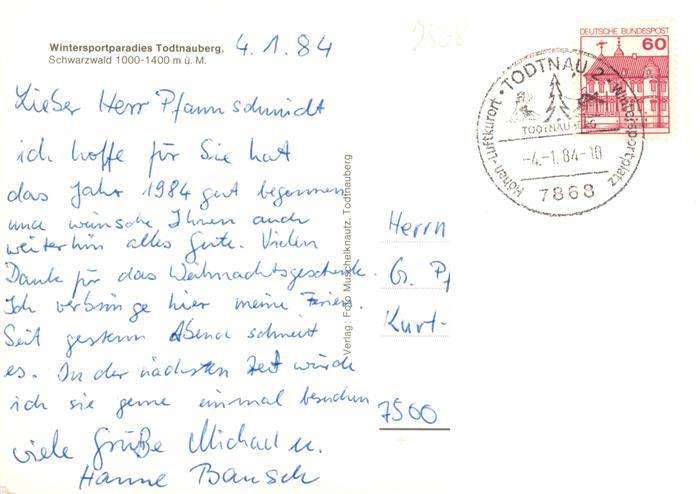 Wintersportparadies Todtnauberg,
Schwarzwald 1000-1400 m ü. M.
4.1.84
Lieber Herr Pfannschmidt
ich hoffe für Sie hat
das Jahr 1984 gut begonnen
und wünsche Ihnen auch
weiterhin alles Gute. Vielen
Dank für das Weihnachtsgeschenk.
Ich verbringe hier meine Ferien.
Seit gestern Abend schneit
es. In der nächsten Zeit würde
ich sie gerne einmal besuchen
viele Grüße Michael u.
Hanne Bausch
Verlag: Foto Muschelknautz, Todtnauberg
DEUTSCHE BUNDESPOST
60
TODTNAU 2 · Wintersportplatz
Höhen-Luftkurort
-4.-1.84-10
7868
Herrn
G. Pf
Kurt-
7500